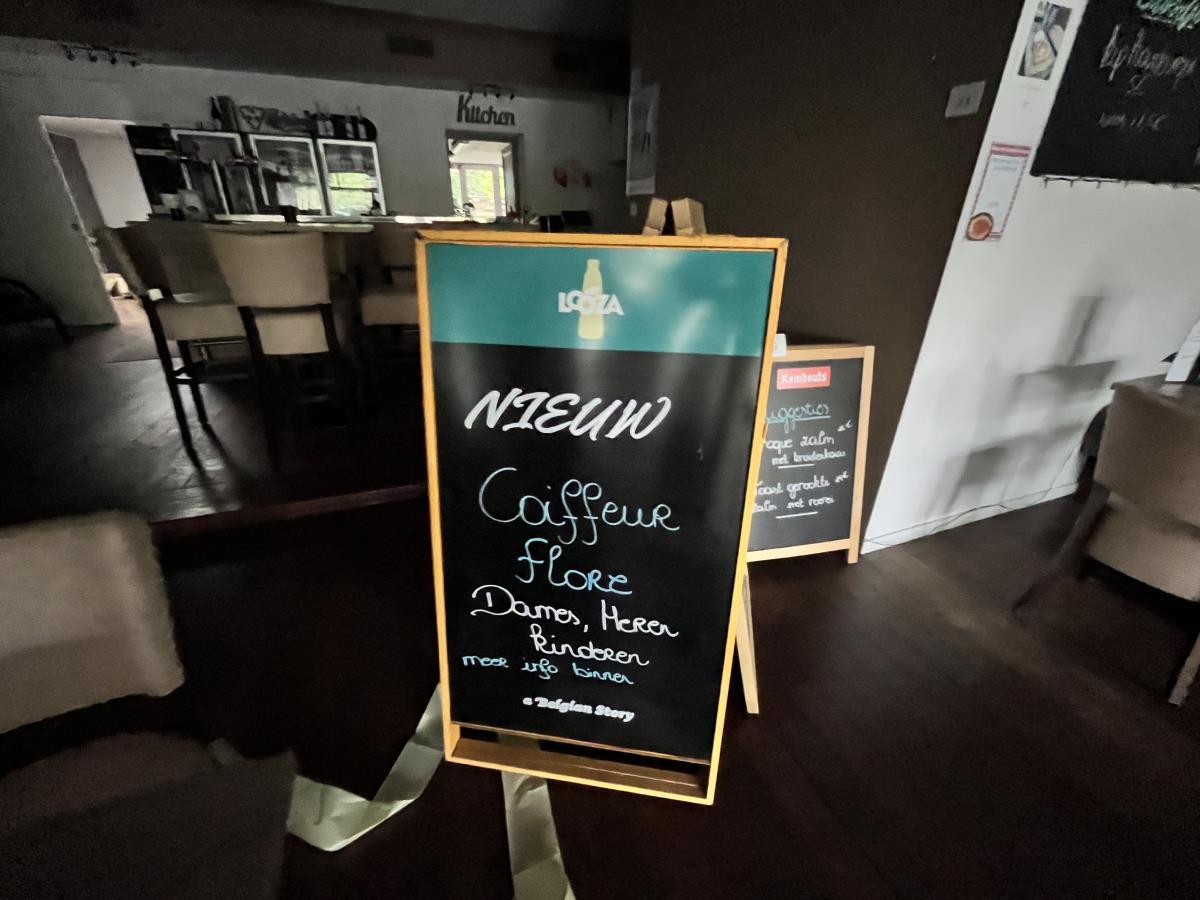 Kitchen
LOOZA
NIEUW
Coiffeur
Flore
Dames, Heren
kinderen
meer info binnen
a Belgian Story
Rombouts
zalm
met kruidenkaas
gerookte
met